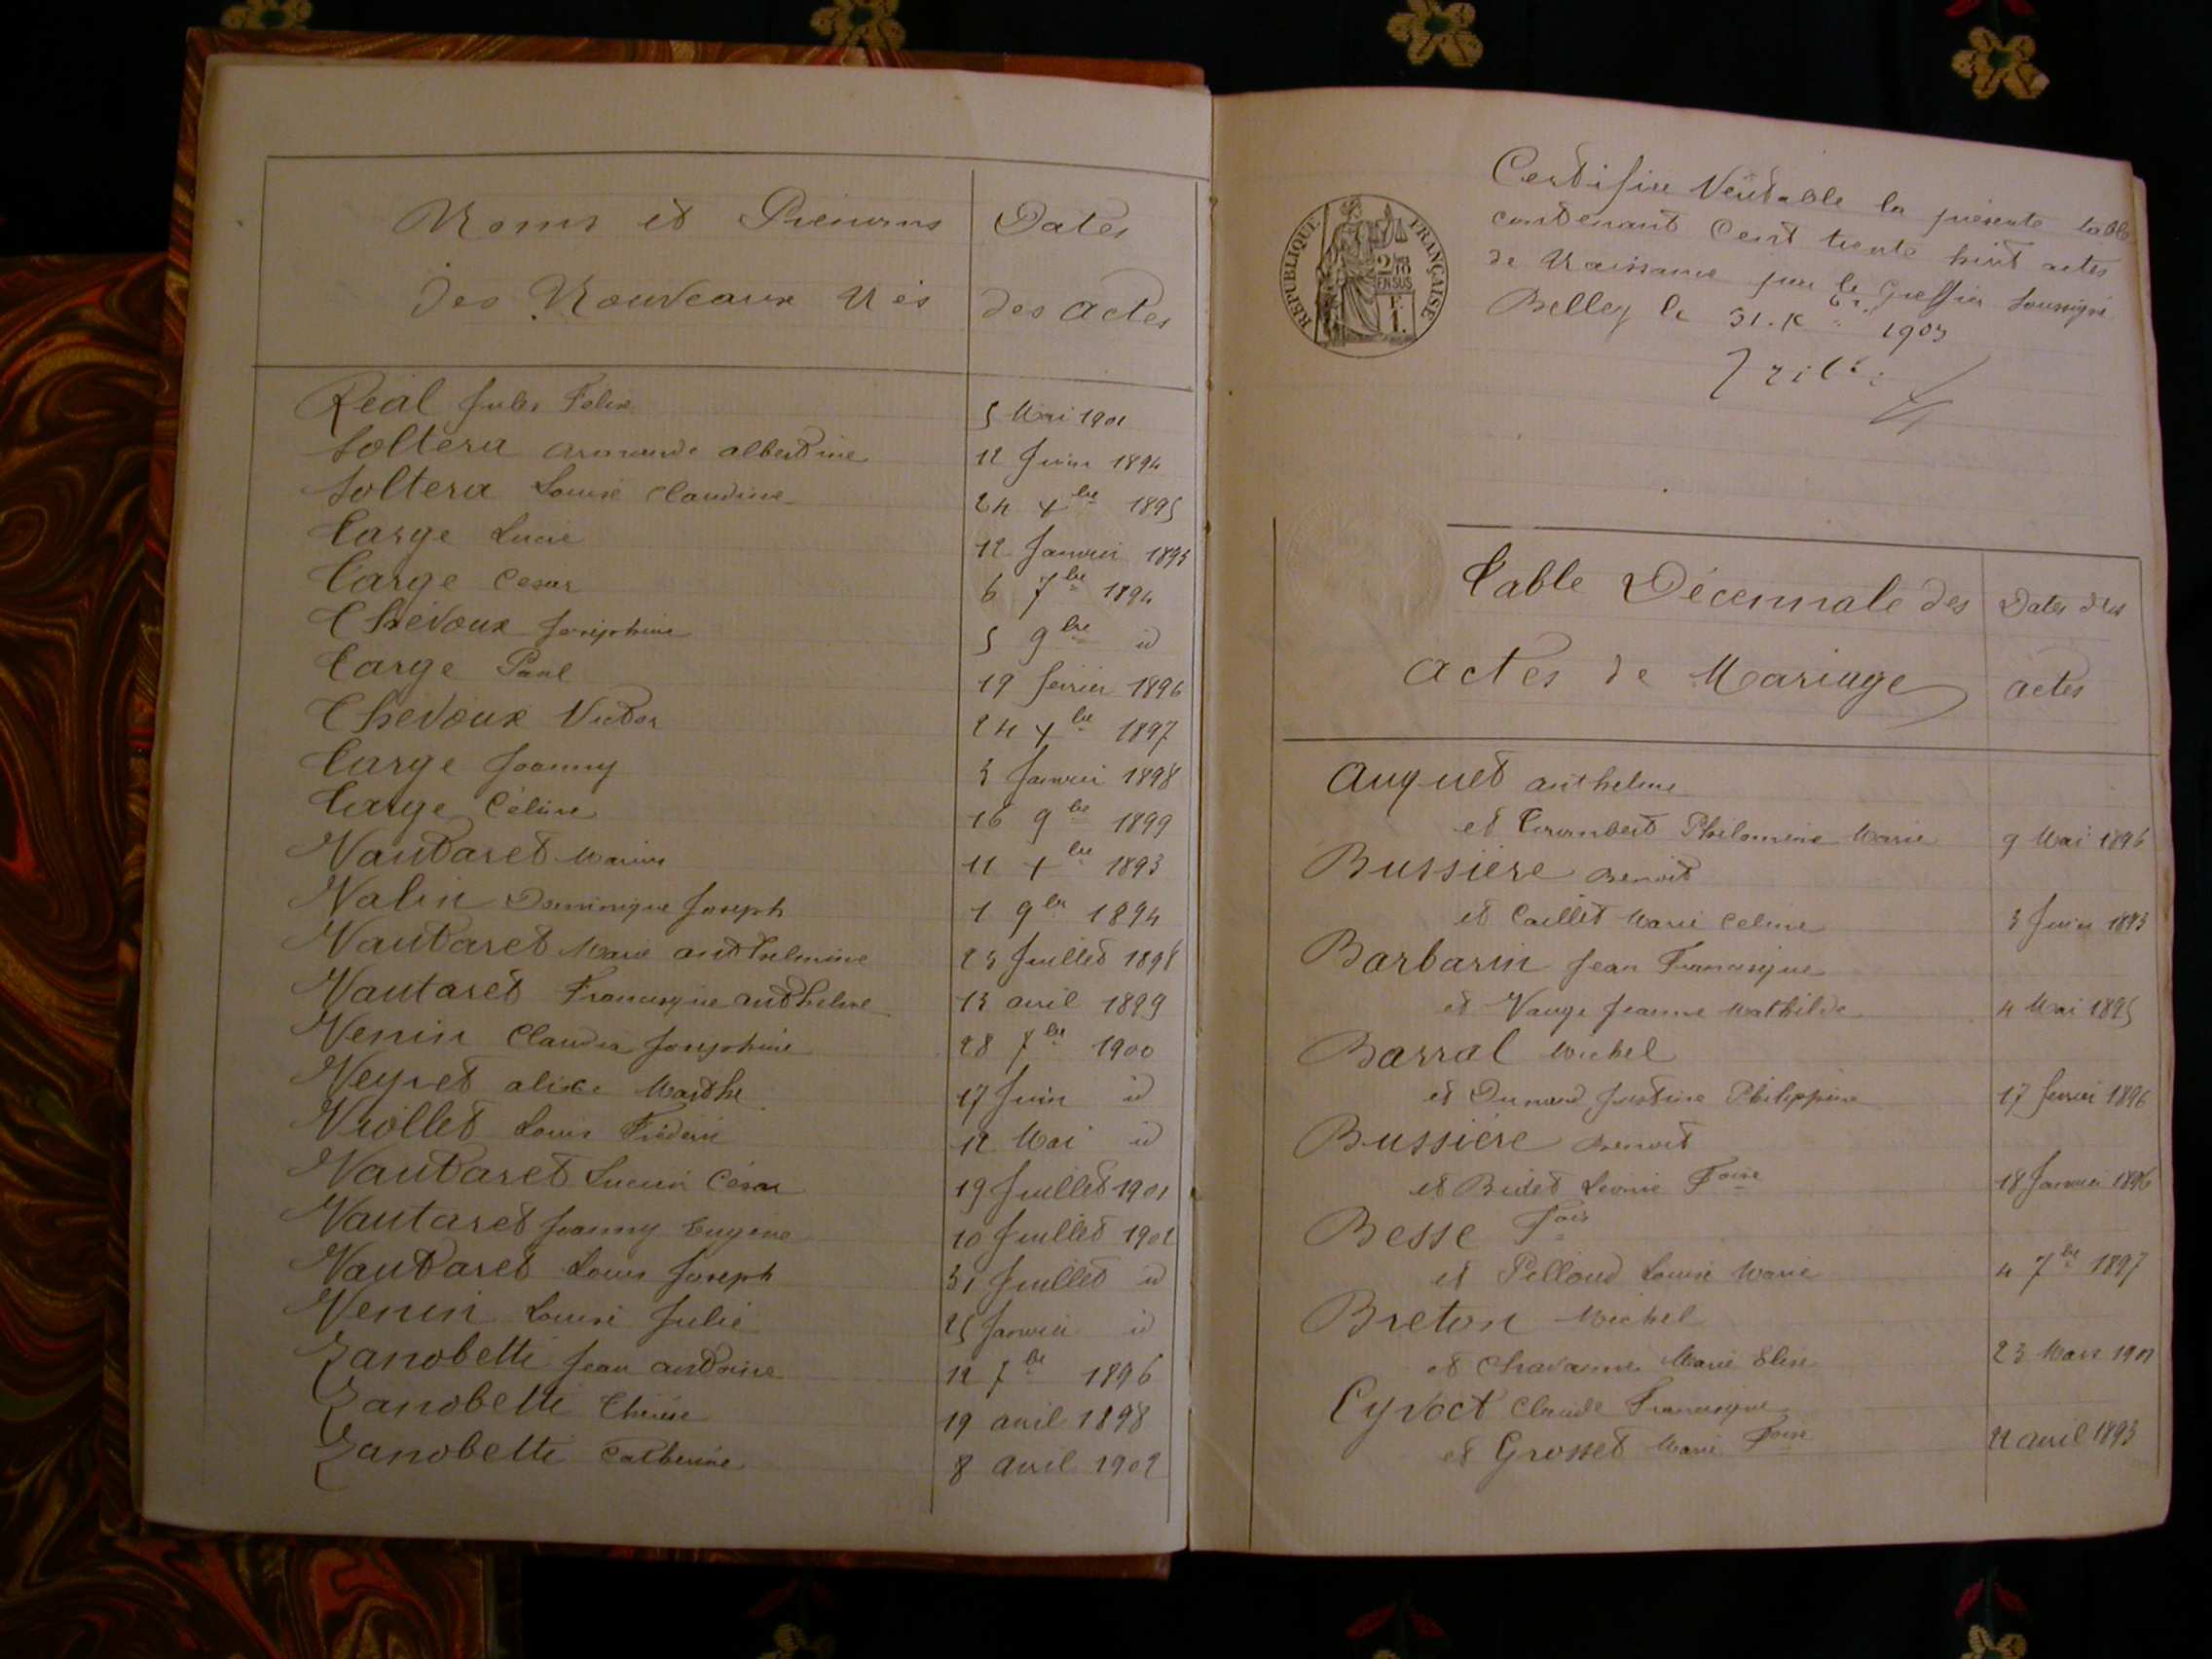 Noms et Prénoms
Dates
des Nouveaux Nés
des actes
Réal Jules Félix
5 Mai 1901
Soltera armande albertine
12 Juin 1894
Soltera Louise Claudine
24 xbre 1895
Targe Lucie
12 Janvier 1893
Targe Cesar
6 7bre 1894
Thévoux Joséphine
5 9bre id
Targe Paul
19 février 1896
Thévoux Victor
24 xbre 1897
Targe Joanny
3 Janvier 1898
Targe Céline
16 9bre 1899
Vautaret Marius
11 xbre 1893
Valin Dominique Joseph
1 9bre 1894
Vautaret Marie anthelmine
23 Juillet 1898
Vautaret Francisque anthelme
13 avril 1899
Venin Claudia Joséphine
28 7bre 1900
Veyret alice Marthe
17 Juin id
Viollet Louis Fréderic
12 Mai id
Vautaret Lucien César
19 Juillet 1901
Vautaret Joanny Eugène
10 Juillet 1902
Vautaret Louis Joseph
31 Juillet id
Venin Louise Julie
25 Janvier id
Zanobetti Jean antoine
12 7bre 1896
Zanobetti Thérèse
19 avril 1898
Zanobetti Catherine
8 avril 1902
RÉPUBLIQUE FRANÇAISE
2/10 EN SUS
F. 1.
Certifiée Véritable la présente table
contenant Cent trente huit actes
de Naissance par le Greffier soussigné
Belley le 31. xbre 1903
Table Décennale des
Dates des
actes de Mariage
actes
Auquet anthelme
et Tournbert Philomène Marie
9 Mai 1896
Bussière Benoit
et Caillet Marie Celine
3 Juin 1893
Barbarin Jean Francisque
et Vauge Jeanne Mathilde
4 Mai 1895
Barral Michel
et Dunand Justine Philippine
17 février 1896
Bussière Benoit
et Bidet Léonie Foise
18 Janvier 1896
Besse Fois
et Pelloud Louise Marie
4 7bre 1897
Breton Michel
et Chavanne Marie Elise
23 Mars 1901
Eyvoct Claude Francisque
et Grosset Marie Foise
22 avril 1893